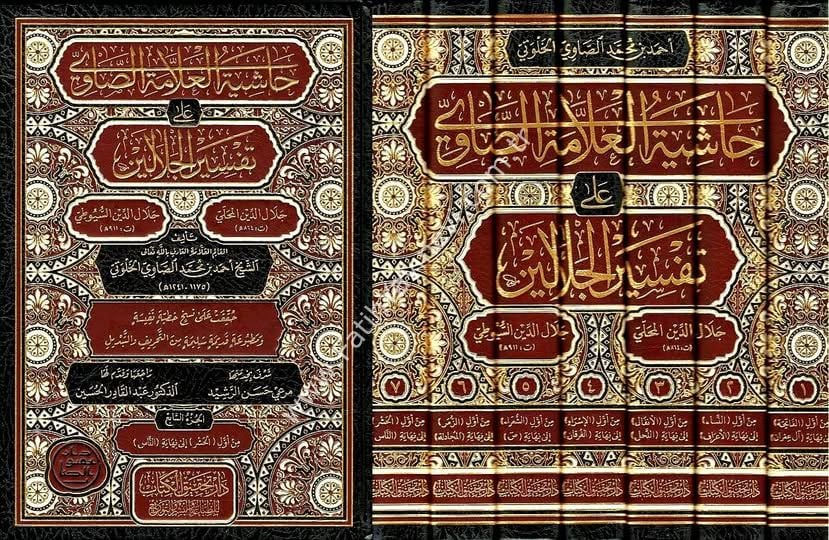 حاشية العلامة الصاوي
على
تفسير الجلالين
جلال الدين المحلي
(ت: ٨٦٤ه)
جلال الدين السيوطي
(ت: ٩١١ه)
تأليف
العالم العلامة العارف بالله تعالى
الشيخ أحمد بن محمد الصاوي الخلوتي
(١١٧٥-١٢٤١ه)
حققت على نسخ خطية نفيسة
ومطبوعة قديمة سليمة من التحريف والتبديل
شرف بخدمتها
مرعي حسن الرشيد
راجعها وقدم لها
الدكتور عبد القادر الحسين
الجزء السابع
من أول (الحشر) إلى نهاية (الناس)
دار تحقيق الكتاب
للطباعة والنشر والتوزيع
أحمد بن محمد الصاوي الخلوتي
حاشية العلامة الصاوي
على
تفسير الجلالين
جلال الدين المحلي
(ت: ٨٦٤ه)
جلال الدين السيوطي
(ت: ٩١١ه)
١
٢
٣
٤
٥
٦
٧
من أول (الفاتحة)
إلى نهاية (آل عمران)
من أول (النساء)
إلى نهاية (الأعراف)
من أول (الأنفال)
إلى نهاية (النحل)
من أول (الإسراء)
إلى نهاية (الفرقان)
من أول (الشعراء)
إلى نهاية (ص)
من أول (الزمر)
إلى نهاية (المجادلة)
من أول (الحشر)
إلى نهاية (الناس)
دار تحقيق الكتاب
دار تحقيق الكتاب
دار تحقيق الكتاب
دار تحقيق الكتاب
دار تحقيق الكتاب
دار تحقيق الكتاب
دار تحقيق الكتاب